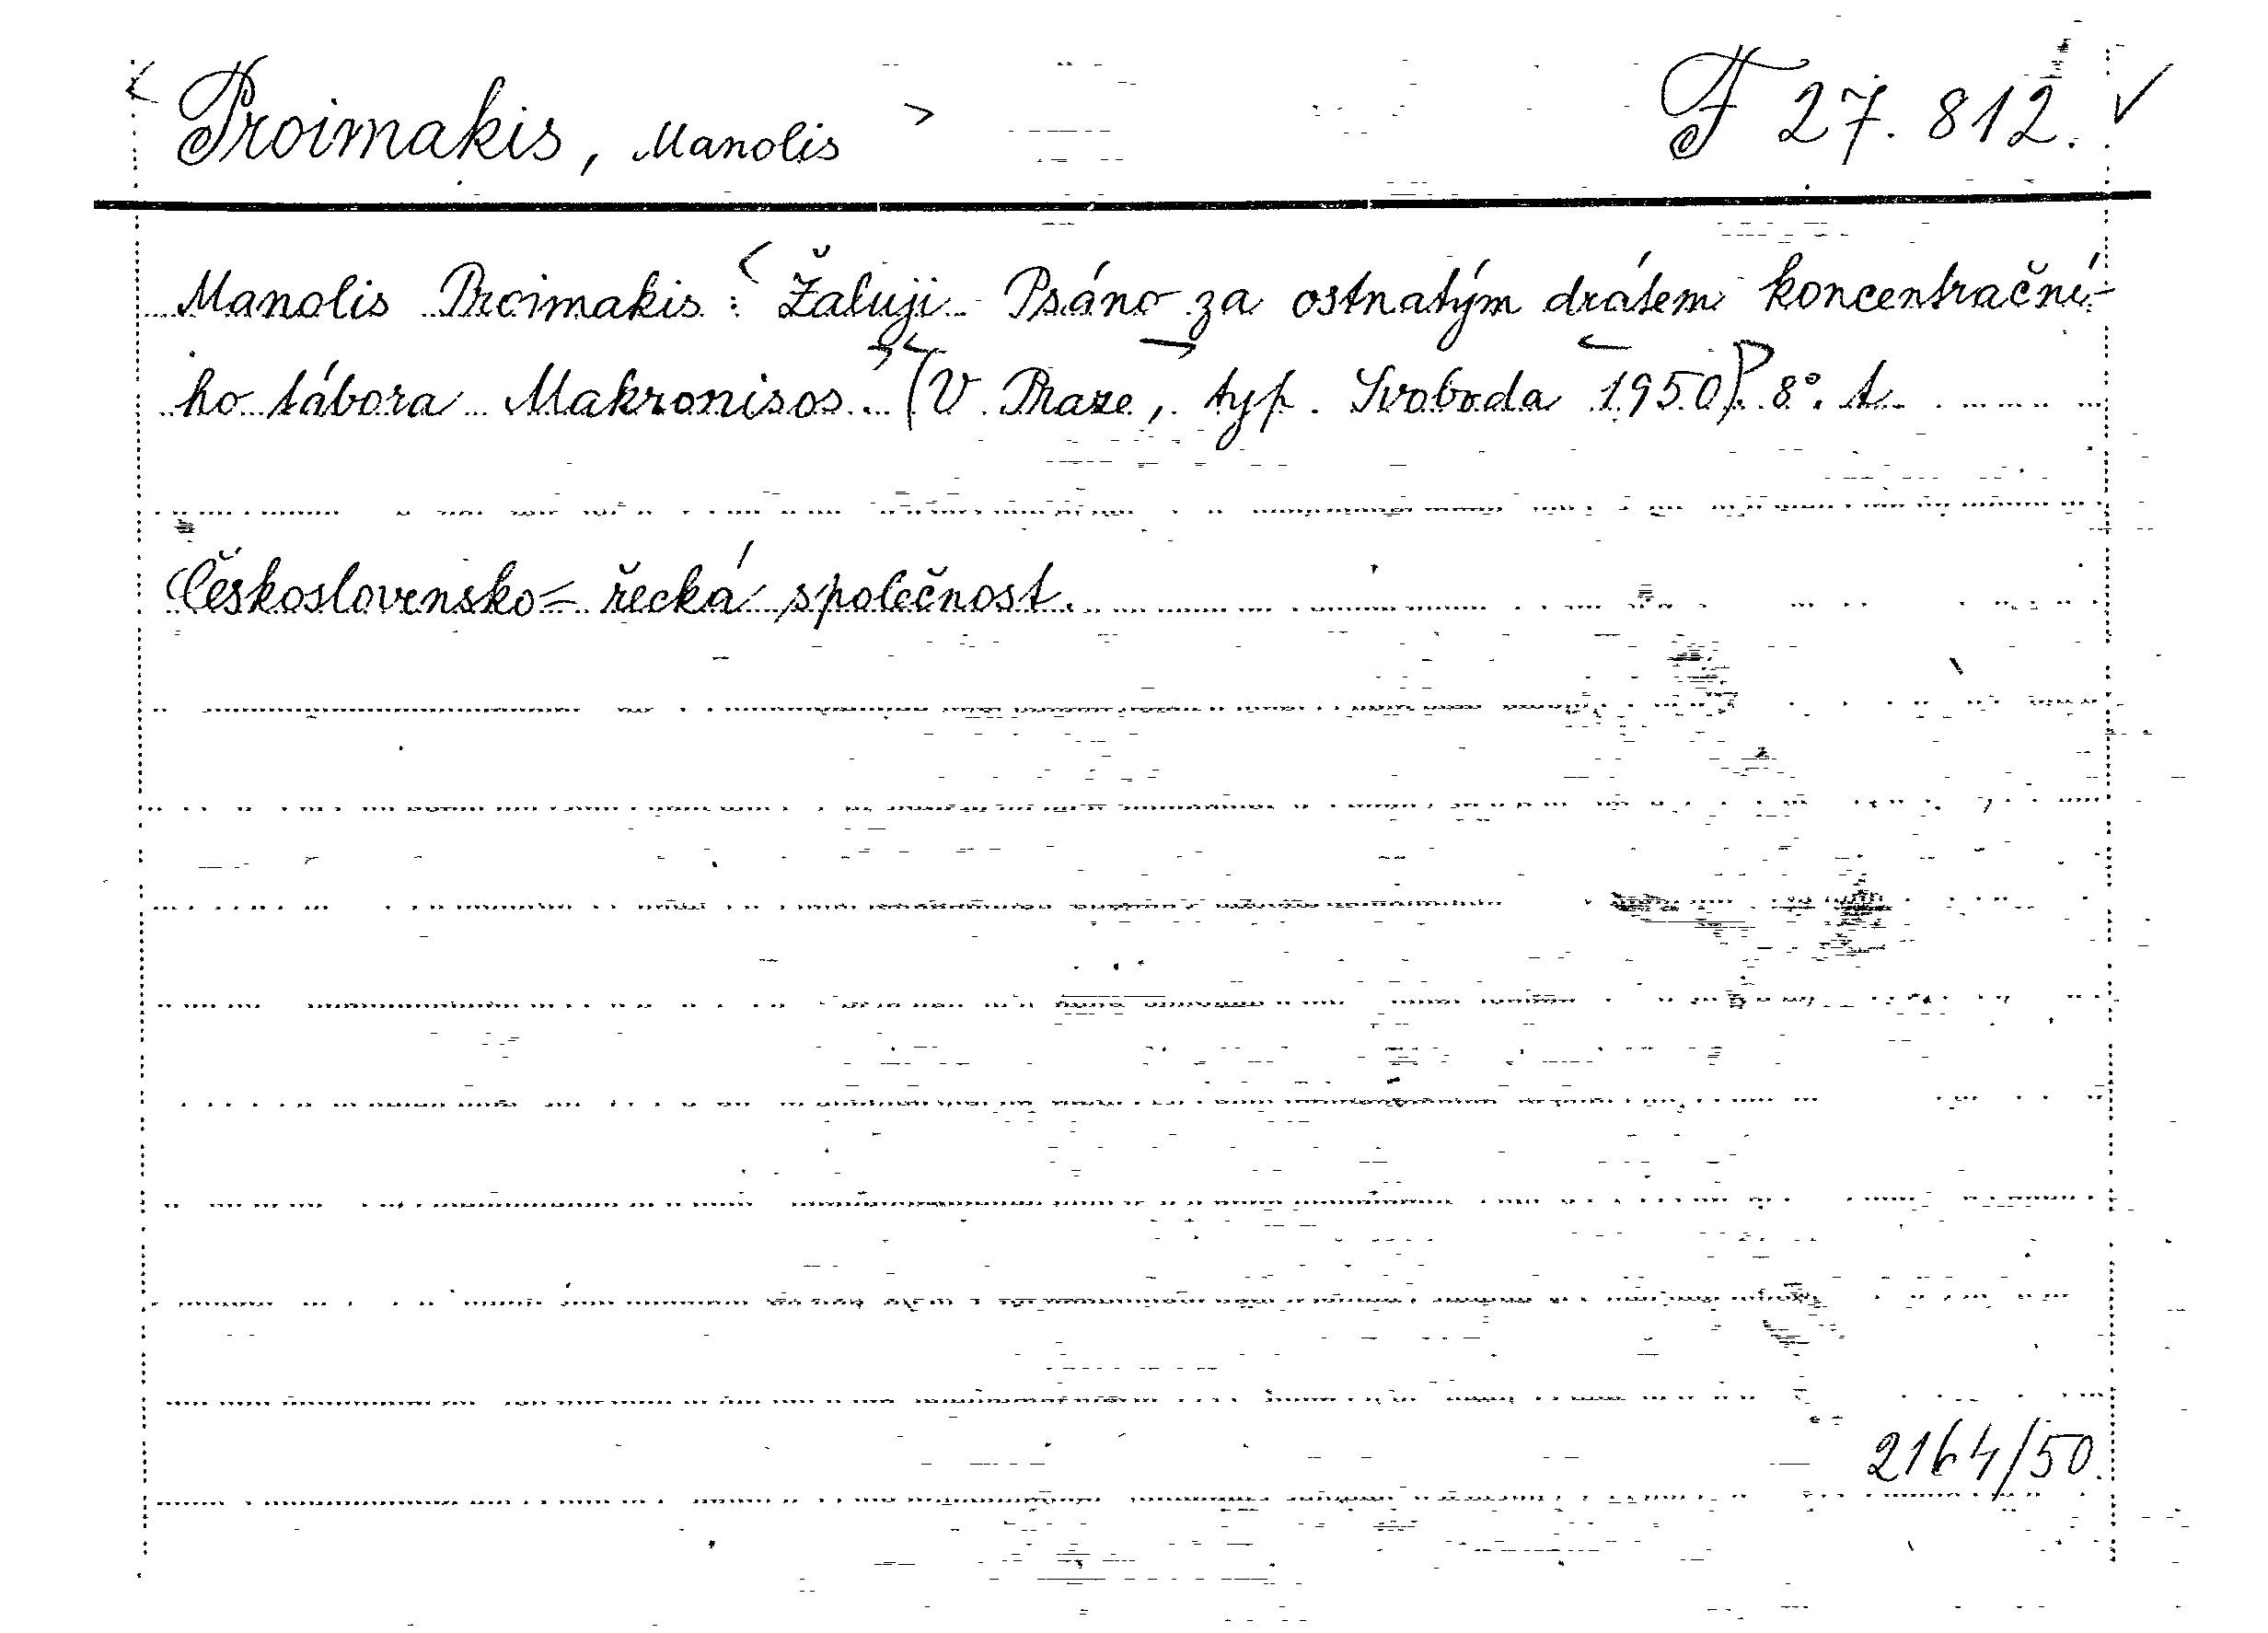 Proimakis, Manolis F 27.812.
Manolis Proimakis: Žaluji. Psáno za ostnatým drátem koncentrační-
ho tábora Makronisos. (V Praze, typ. Svoboda 1950). 8°. t.
Československo-řecká společnost.
2164/50.